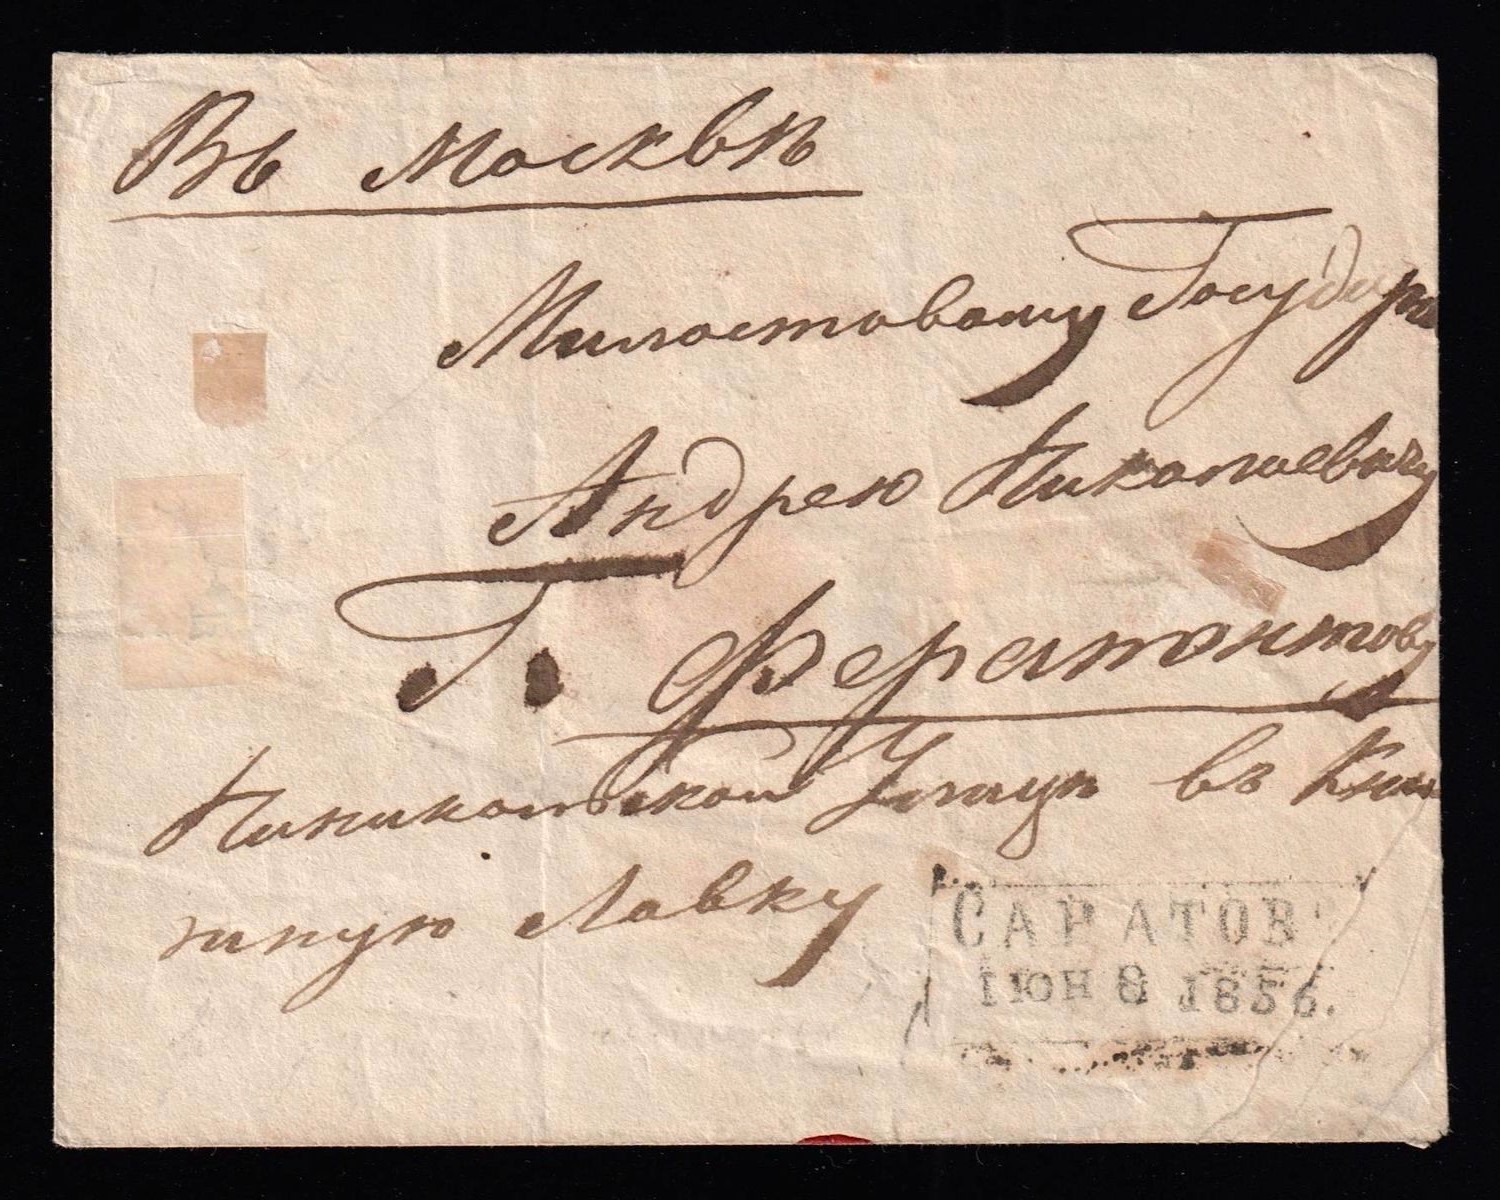 Въ Москвѣ
Милостовому Государю
Андрею Николаевичу
Г. Ферапонтову
Наникольской Улицу въ Кни
жную Лавку
САРАТОВ
ІЮН 8 1856.